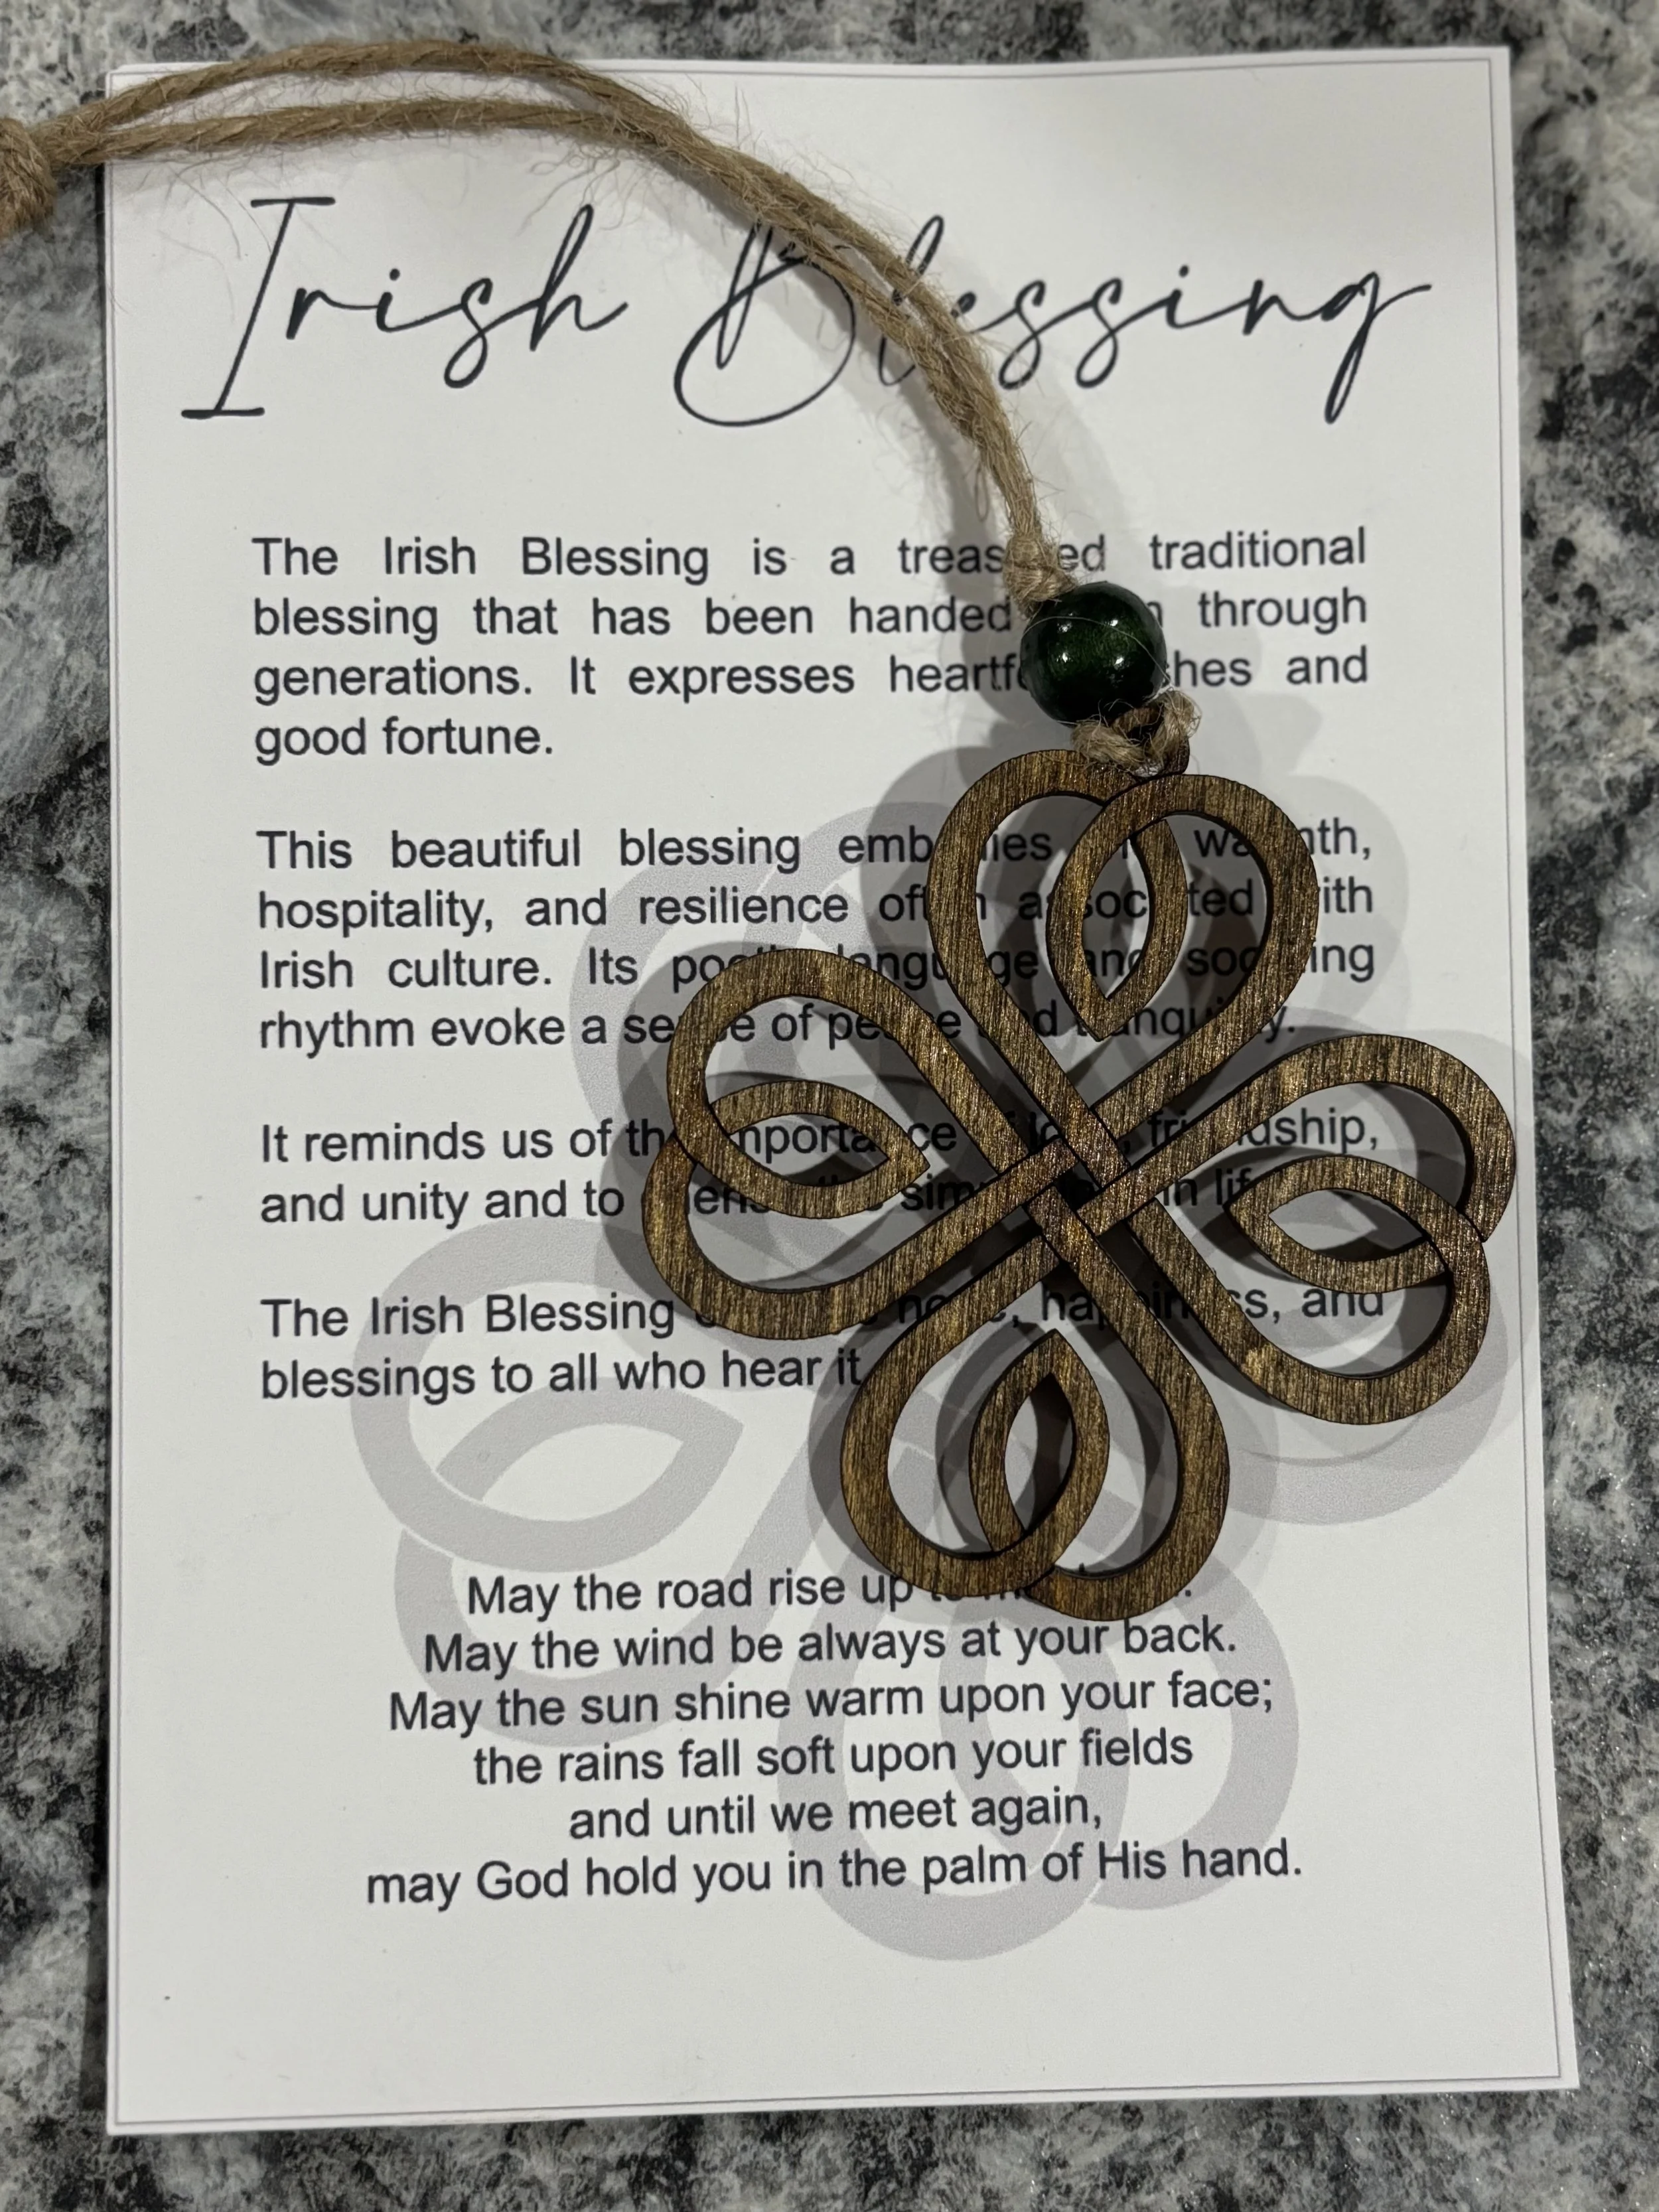 Irish Blessing
The Irish Blessing is a treasured traditional
blessing that has been handed through
generations. It expresses heartfelt wishes and
good fortune.
This beautiful blessing embodies warmth,
hospitality, and resilience often associated with
Irish culture. Its poetic language and soothing
rhythm evoke a sense of peace and tranquility.
It reminds us of the importance friendship,
and unity and to in
The Irish Blessing happiness, and
blessings to all who hear it
May the road rise up
May the wind be always at your back.
May the sun shine warm upon your face;
the rains fall soft upon your fields
and until we meet again,
may God hold you in the palm of His hand.